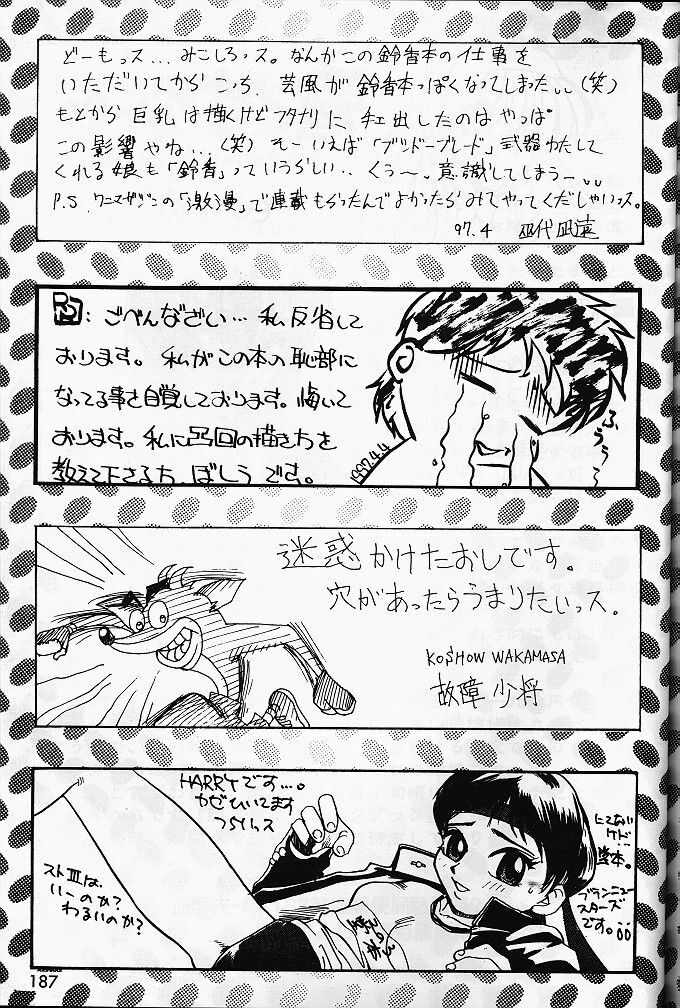 どーもっス…みこしろっス。なんかこの鈴香本の仕事を
いただいてからこっち、芸風が鈴香本っぽくなってしまった(笑)
もとから巨乳は描くけどフタナリに
出したのはやっぱ
この影響やね…(笑) そーいえば「ブシドーブレード」武器わたして
くれる娘も「鈴香」っていうらしい..くぅ〜、意識してしまうー
P.S ワニマガジンの「激漫」で連載もらったんでよかったらみてやってくだしゃいっス。
97.4
: ごべんなざい…私反省して
おります。私がこの本の恥部に
なってる事を自覚しております。悔いて
おります。私に凸凹の描き方を
教えて下さる方、ぼしうです。
ふぅぅ〜
1997.4.4
迷惑かけたおしです。
穴があったらうまりたいっス。
KOSHOW WAKAMASA
故障少将
HARRYです…。
かぜひいてます
つらいっス
ストⅢは
いーのか?
わるいのか?
にてない
ケド
ブランニュー
スターズ
です。
187